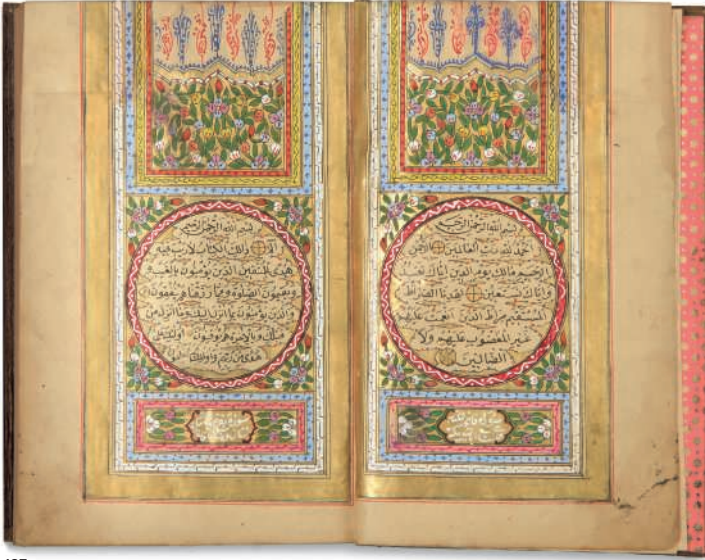 بسم الله الرحمن الرحيم
الحمد لله رب العالمين الرحمن
الرحيم مالك يوم الدين اياك نعبد
واياك نستعين اهدنا الصراط
المستقيم صراط الذين انعمت عليهم
غير المغضوب عليهم ولا
الضالين
بسم الله الرحمن الرحيم
الم ذلك الكتاب لا ريب فيه
هدى للمتقين الذين يؤمنون بالغيب
ويقيمون الصلوة ومما رزقناهم ينفقون
والذين يؤمنون بما انزل اليك وما انزل من
قبلك وبالاخرة هم يوقنون اولئك
هدى من ربهم واولئك